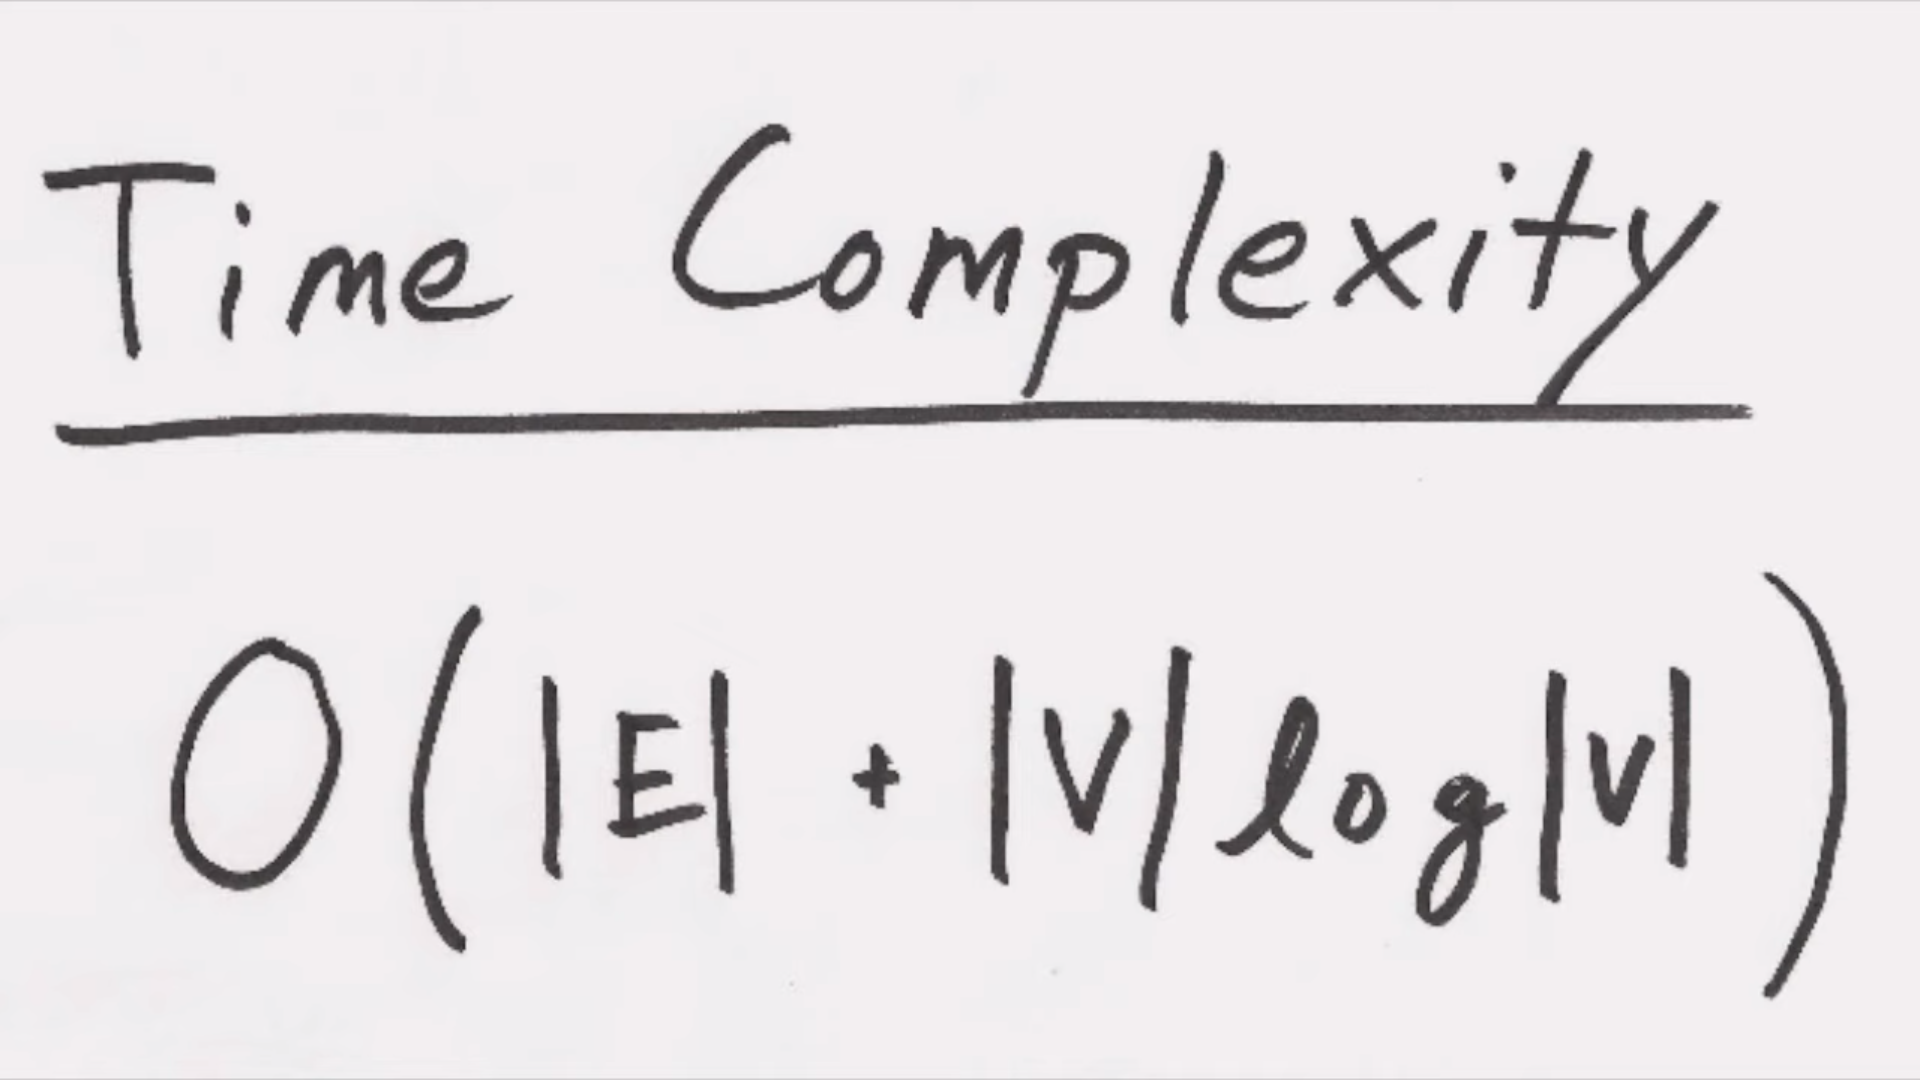 Time Complexity
O(|E| + |V| log |V|)